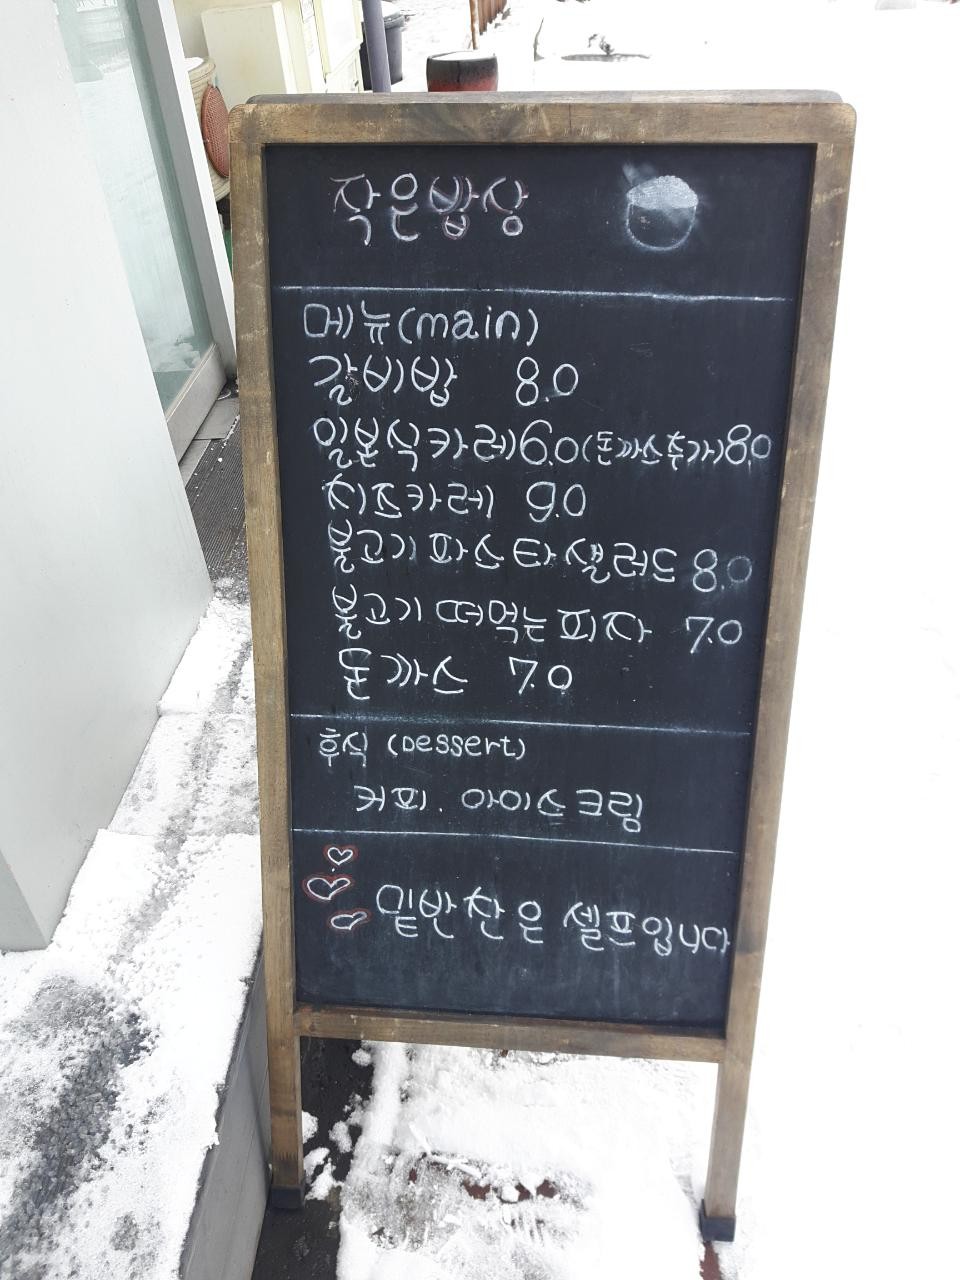 작은밥상
메뉴(main)
갈비밥 8.0
일본식카레 6.0(돈까스추가)8.0
치즈카레 9.0
불고기 파스타 샐러드 8.0
불고기 떠먹는 피자 7.0
돈까스 7.0
후식 (Dessert)
커피. 아이스크림
밑반찬은 셀프입니다